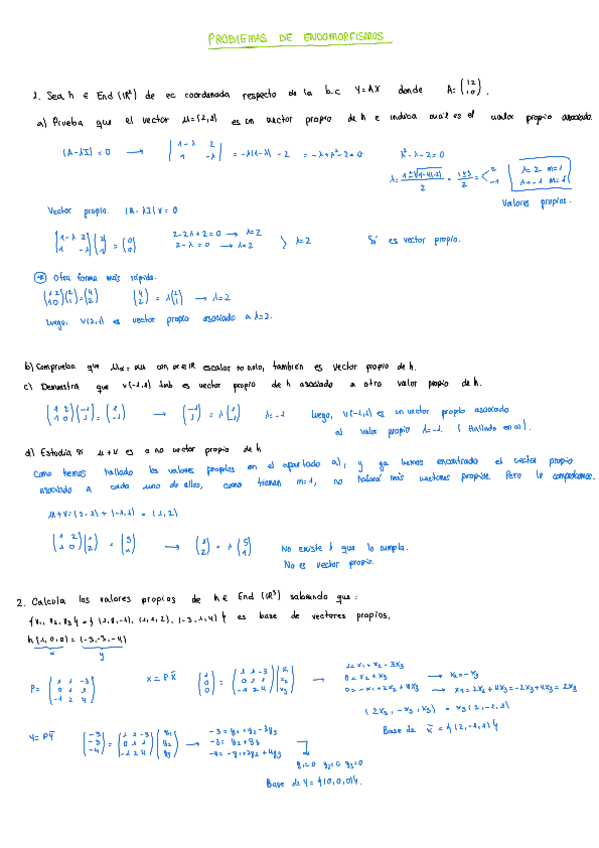 PROBLEMAS DE ENDOMORFISMOS.
1. Sea h ∈ End (ℝ²) de ec coordenada respecto de la b.c Y=AX donde A= (1 2 / 1 0).
a) Prueba que el vector u=(2,1) es un vector propio de h e indica cuál es el valor propio asociado.
|A-λI| = 0 → |1-λ 2 / 1 -λ| = -λ(1-λ) - 2 = -λ+λ²-2=0 λ²-λ-2=0
λ = (1±√(1-4(-2)))/2 = (1±3)/2 = < 2 / -1
λ=2 m=1
λ=-1 m=1
Valores propios.
Vector propio. |A-λI| v = 0
(1-λ 2 / 1 -λ)(2 / 1) = (0 / 0) 2-2λ+2=0 → λ=2
2-λ=0 → λ=2 } λ=2 Sí es vector propio.
Otra forma más rápida.
(1 2 / 1 0)(2 / 1) = (4 / 2) (4 / 2) = λ(2 / 1) → λ=2
Luego, v(2,1) es vector propio asociado a λ=2.
b) Comprueba que con α∈ℝ escalar no nulo, también es vector propio de h.
c) Demuestra que v(-1,1) es vector propio de h asociado a otro valor propio de h.
(1 2 / 1 0)(-1 / 1) = (1 / -1) → λ=-1 Luego, v(-1,1) es un vector propio asociado
al valor propio λ=-1. (Hallado en a).
d) Estudia si u+v es o no vector propio de h
Como hemos hallado los valores propios en el apartado a), y ya hemos encontrado el vector propio
asociado a cada uno de ellos, como tienen m=1, no habrá más vectores propios. Pero lo comprobamos.
u+v=(2,1)+(-1,1) = (1,2)
(1 2 / 1 0)(1 / 2) = (5 / 1) → (1 / 2) = λ(5 / 1) No existe λ que lo cumpla.
No es vector propio.
2. Calcula los valores propios de h∈ End (ℝ³) sabiendo que:
= {(1,0,-1), (1,1,2), (-3,1,4)} es base de vectores propios.
h(1,0,0) = (-3,-3,-4)
x y
P= (1 1 -3 / 0 1 1 / -1 2 4) X = PX̄ (1 / 0 / 0) = (1 1 -3 / 0 1 1 / -1 2 4)(x₁ / x₂ / x₃) →
1=x₁+x₂-3x₃
0=x₂+x₃ → x₂=-x₃
0=-x₁+2x₂+4x₃ → x₁=2x₂+4x₃=-2x₃+4x₃=2x₃
(2x₃, -x₃, x₃) = x₃(2,-1,1)
Base de x̄ = {(2,-1,1)}
Y= PȲ (-3 / -3 / -4) = (1 1 -3 / 0 1 1 / -1 2 4)(y₁ / y₂ / y₃) →
-3=y₁+y₂-3y₃
-3=y₂+y₃
-4=-y₁+2y₂+4y₃
y₁=0 y₂=0 y₃=0
Base de Y = {(0,0,0)}.